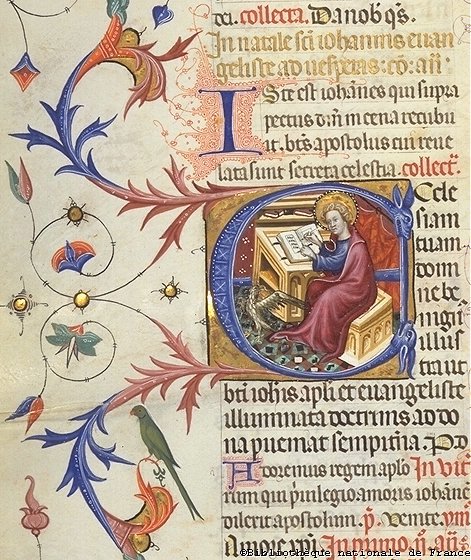 dei. collecta. Da nob qs.
In natale sci iohannis euan
geliste ad uesperas: co: an:
Iste est iohanes qui supra
pectus dni in cena recubu
it. bts apostolus cui reue
lata sunt secreta celestia. collect.
Eccle
siam
tuam
dom
ine be
nigni
illus
tra ut
bti iohis apli et euangeliste
illuminata doctrinis ad do
na pueniat sempitna. P d
Adoremus regem aplo In
rum qui priuilegio amoris iohane
dilexit apostolum. p. Venite. ym
Amore xpi. In primo n. an.
©Bibliothèque nationale de France